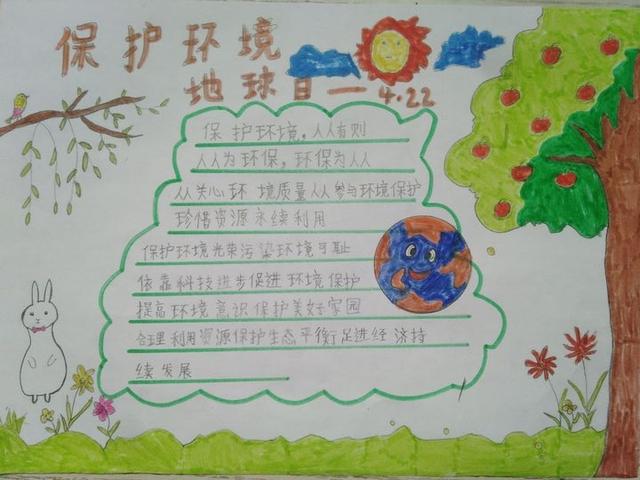 保护环境
地球日—4.22
保护环境,人人有则
人人为环保,环保为人人
从关心环境质量从参与环境保护
珍惜资源永续利用
保护环境光荣污染环境可耻
依靠科技进步促进环境保护
提高环境意识保护美好家园
合理利用资源保护生态平衡足进经济持
续发展